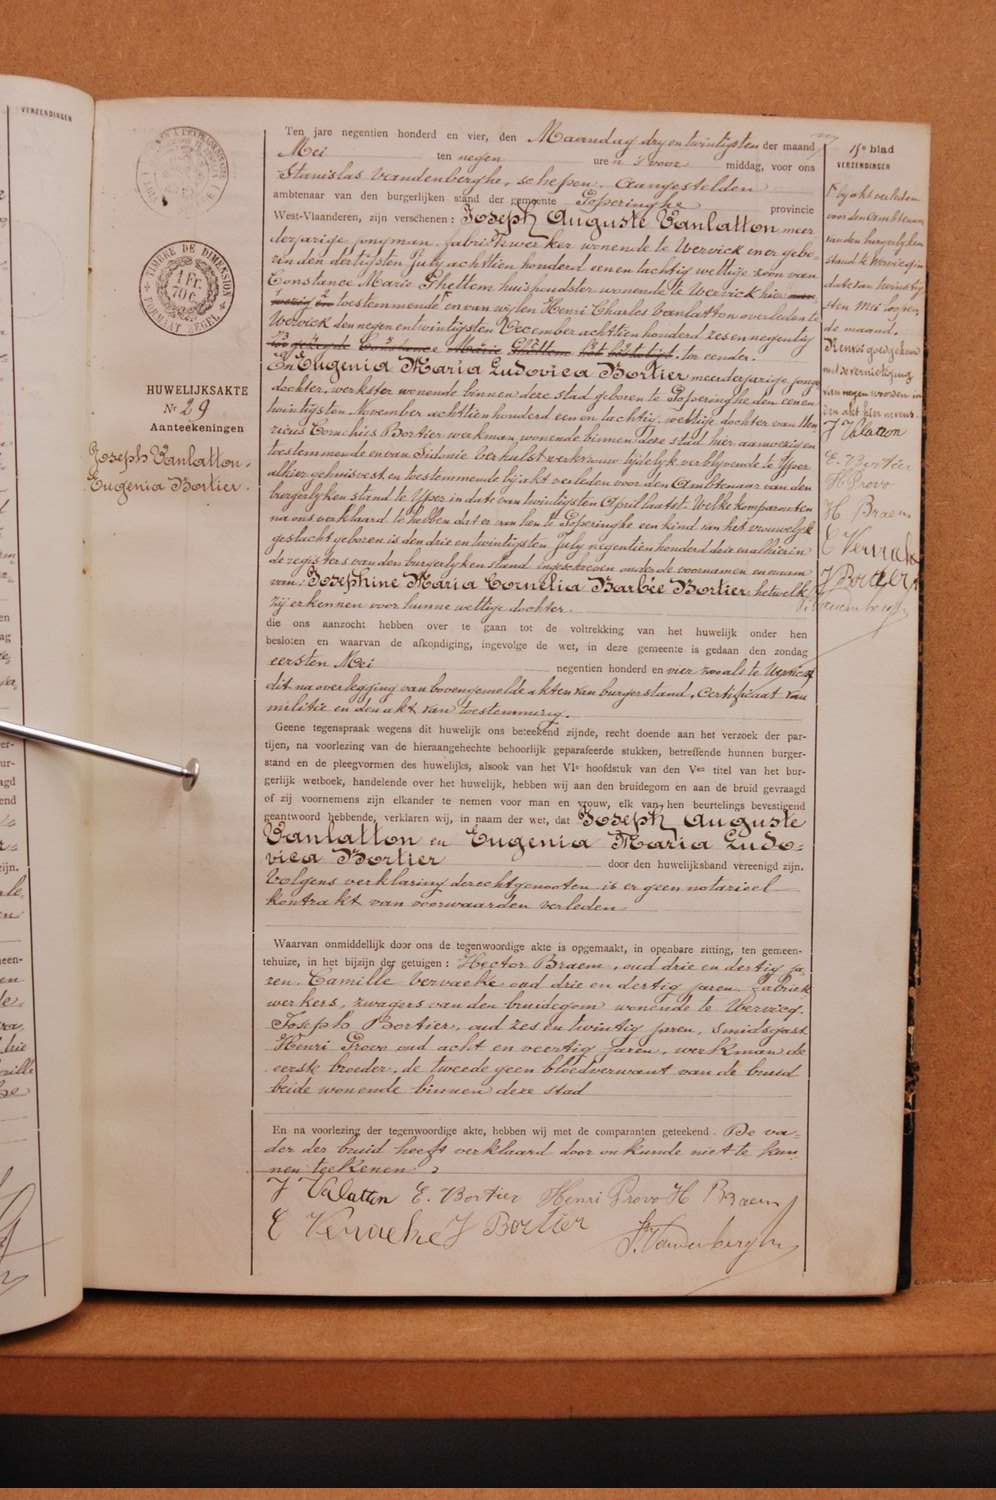 VERZENDINGEN
TIMBRE DE DIMENSION
1 Fr.
70 c.
FORMAAT ZEGEL
HUWELIJKSAKTE
Nr 29
Aanteekeningen
Joseph Vanlatton.
Eugenia Bortier.
Ten jare negentien honderd en vier, den Maandag dry en twintigsten der maand
Mei ten negen ure n voor middag, voor ons
Stanislas Vandenberghe, schepen, aangestelden
ambtenaar van den burgerlijken stand der gemeente Poperinghe provincie
West-Vlaanderen, zijn verschenen: Joseph Auguste Vanlatton meer
derjarige jongman, fabriekwerker wonende te Wervick en er gebo=
ren den dertigsten July achttien honderd een en tachtig wettige zoon van
Constance Marie Ghellem huishoudster wonende te Wervick hier
toestemmende en van wijlen Henri Charles Vanlatton overleden te
Werwick den negen en twintigsten December achttien honderd zes en negentig
Constance Marie Ghellem ter eender.
En Eugenia Maria Ludovica Bortier meerderjarige jonge
dochter, werkster wonende binnen deze stad geboren te Poperinghe den een en
twintigsten November achttien honderd een en tachtig, wettige dochter van Hen
ricus Cornelius Bortier werkman, wonende binnen deze stad hier aanwezig en
toestemmende en van Sidonie Verhulst werkvrouw tijdelyk verblyvende te Yper
alhier gehuisvest en toestemmende bij akt verleden voor den Ambtenaar van den
burgerlyken stand te Yper in date van twintigsten April laatst. Welke komparanten
na ons verklaard te hebben dat er van hen te Poperinghe een kind van het vrouwelyk
geslacht geboren is den drie en twintigsten July negentien honderd drie en alhier in
de registers van den burgerlyken stand ingeschreven onder de voornamen en naam
van: Josephine Maria Cornelia Barbée Bortier hetwelk
zij erkennen voor hunne wettige dochter.
die ons aanzocht hebben over te gaan tot de voltrekking van het huwelijk onder hen
besloten en waarvan de afkondiging, ingevolge de wet, in deze gemeente is gedaan den zondag
eersten Mei negentien honderd en vier zooals te Wervick
dit na overlegging van bovengemelde akten van burgerstand, certificaat van
militie en den akt van toestemming.
Geene tegenspraak wegens dit huwelijk ons beteekend zijnde, recht doende aan het verzoek der par-
tijen, na voorlezing van de hieraangehechte behoorlijk geparafeerde stukken, betreffende hunnen burger-
stand en de pleegvormen des huwelijks, alsook van het VIe hoofdstuk van den Ven titel van het bur-
gerlijk wetboek, handelende over het huwelijk, hebben wij aan den bruidegom en aan de bruid gevraagd
of zij voornemens zijn elkander te nemen voor man en vrouw, elk van hen beurtelings bevestigend
geantwoord hebbende, verklaren wij, in naam der wet, dat Joseph Auguste
Vanlatton en Eugenia Maria Ludo=
vica Bortier door den huwelijksband vereenigd zijn.
Volgens verklaring der echtgenooten is er geen notarieel
kontrakt van voorwaarden verleden
Waarvan onmiddellijk door ons de tegenwoordige akte is opgemaakt, in openbare zitting, ten gemeen-
tehuize, in het bijzijn der getuigen: Hector Braem, oud drie en dertig ja-
ren. Camille Vervaeke oud drie en dertig jaren. Fabriek
werkers, zwagers van den bruidegom wonende te Wervicq.
Joseph Bortier, oud zes en twintig jaren, smidsgast
Henri Provo oud acht en veertig jaren, werkman de
eerste broeder, de tweede geen bloedverwant van de bruid
beide wonende binnen deze stad
En na voorlezing der tegenwoordige akte, hebben wij met de comparanten geteekend. De va=
der der bruid heeft verklaard door onkunde niet te kun
nen teekenen
J Valatton E. Bortier Henri Provo H Braem
C Vervaeke J Bortier St. Vandenberghe
15e blad
VERZENDINGEN
1° by akt verleden
voor den Ambtenaar
van den burgerlyken
stand te Wervicq in
date van twintig
sten Mei loopen
de maand.
Renvoi goedgekeurd
met de vernietiging
van negen woorden in
den akt hier nevens.
J Valatton
E. Bortier
H Provo
H Braem
C Vervaeke
J Bortier
St. Vandenberghe